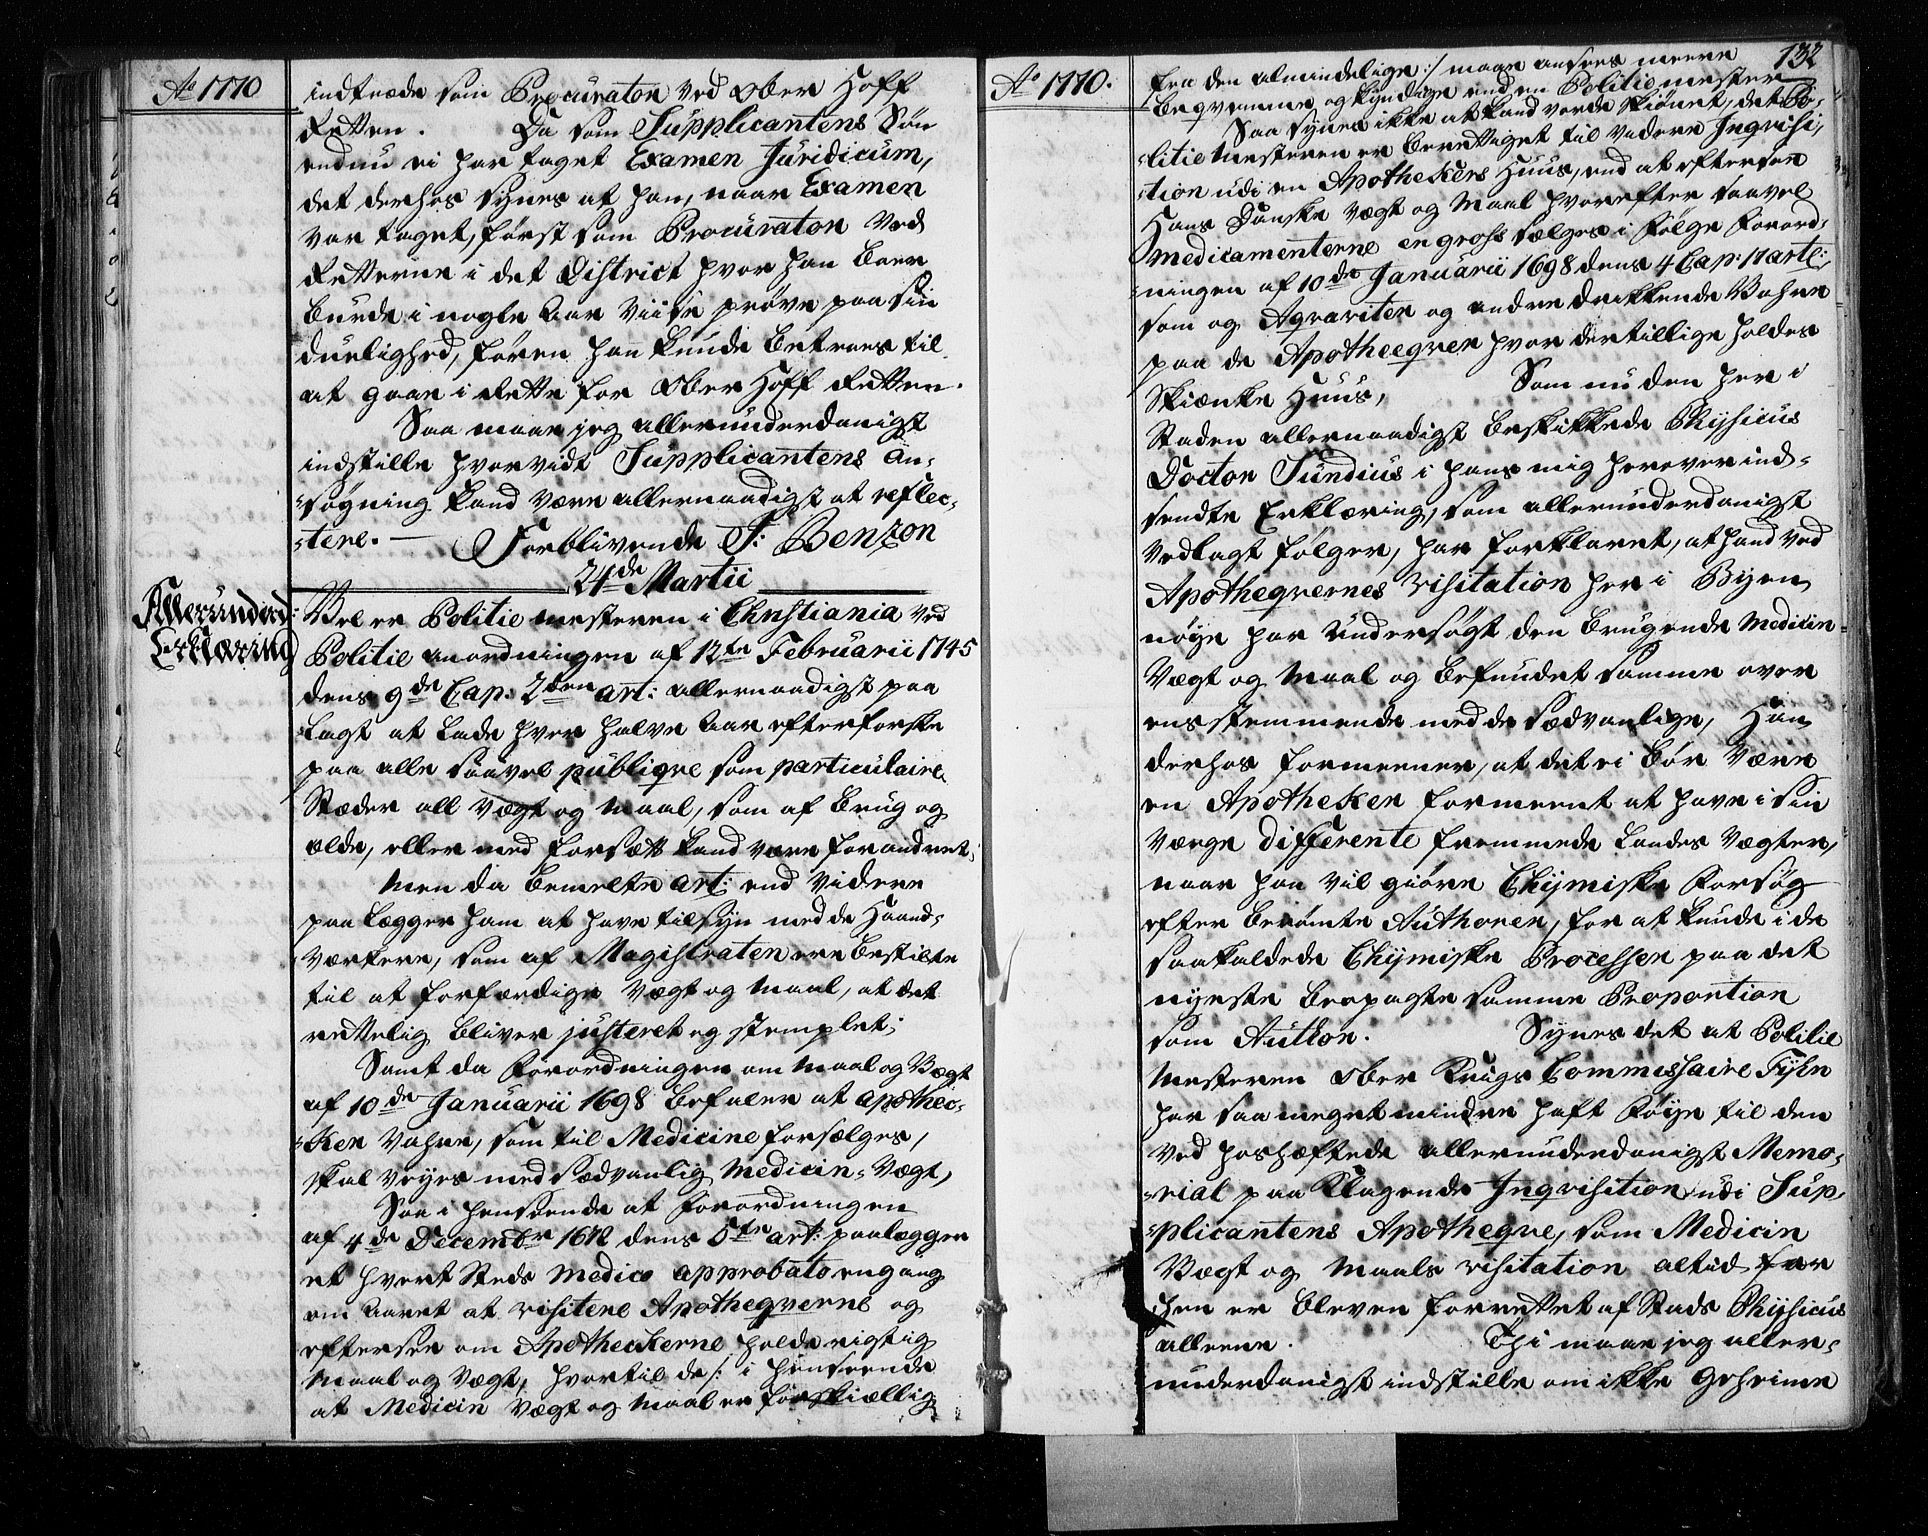 Ao 1770
indtræde som Procurator ved Ober Hoff
Retten. Da som Supplicantens Søn
endnu ei har taget Examen Juridicum,
det derhos synes at han, naar Examen
var taget, først som Procurator ved
Retterne i det District hvor han boer
burde i nogle Aar viise prøve paa sin
duelighed, føren han kunde betroes til
at gaae i Rette for Ober Hoff Retten.
Saa maae jeg allerunderdanigst
indstille hvorvidt Supplicantens An-
-søgning kand være allernaadigst at reflec-
-tere. — Forblivende J: Benzon
24de Martii
Allerunderd:
Erklæring
Vel er Politie mesteren i Christiania ved
Politie anordningen af 12te Februarii 1745
dens 9de Cap: 2den art: allernaadigst paa
lagt at lade hver halve Aar efterforske
paa alle saavel publiqve som particulaire
Stæder all vægt og maal, som af brug og
ælde, eller med forsætt kand være forandret;
Men da bemelte art: end videre
paa lægger ham at have tilsyn med de Haand-
værkere, som af Magistraten ere bestilte
til at forfærdige vægt og maal, at det
rettelig bliver justeret og stemplet;
Samt da Forordningen om maal og Vægt
af 10de Januarii 1698 befaler at apothec-
-ker vahre, som til Medicine forsælges,
skal veyes med sædvanlig medicin-Vægt,
Saa i henseende at Forordningen
af 4de Decembr 1672 dens 5te art: paalægger
et hvert Steds medico approbato engang
om Aaret at visitere Apotheqverne og
eftersee om Apotheckerne holde rigtig
maal og vægt, hvortil de /: i henseende
at Medicin vægt og maal er forskiællig
Ao 1770.
132
fra den almindelige :/ maae ansees meere
beqvemme og kyndige end en Politiemester
Saa synes ikke at kand vorde skiønet, det Po-
-litie Mesteren er berettiget til videre Inqvisi-
-tion udi en Apothekers Huus, end at eftersee
Hans Danske vægt og Maal hvorefter saavel
medicamenterne en gross sælges i Følge Forord-
-ningen af 10de Januarii 1698 dens 4 Cap: 17 arti:
som og Aqvaviten og andre drikkende Vahre
paa de Apotheeqver hvor dertillige holdes
Skiænke Huus, Som nu den her i
Staden allernaadigst beskikkede Physicus
Doctor Sundius i hans mig herover ind-
sendte Erklæring, som allerunderdanigst
vedlagt følger, har forklaret, at hand ved
Apotheqvernes visitation her i Byen
nøye har undersøgt den brugende medicin
Vægt og Maal og befundet samme over
ensstemmende med de sædvanlige, Han
derhos formeener, at det ei bør være
en Apotheker formeent at have i sin
værge differente fremmede Landes vægter,
naar han vil giøre Chymiske Forsøg
efter berømte Authorer, for at kunde i de
saakaldede Chymiske Processer paa det
nyeste beopagte samme Proportion
som Author. Synes det at Politie
Mesteren Ober Krigs Commissaire Fyhn
har saa meget mindre haft Føye til den
ved hoshæftede allerunderdanigst Memo-
-rial paa Klagende Inqvisition udi Sup-
-plicantens Apotheqve, som Medicin
Vægt og Maals visitation altid før
hen er bleven forrettet af Stads Physicus
alleene. Thi maae jeg aller-
underdanigst indstille om ikke Geheime